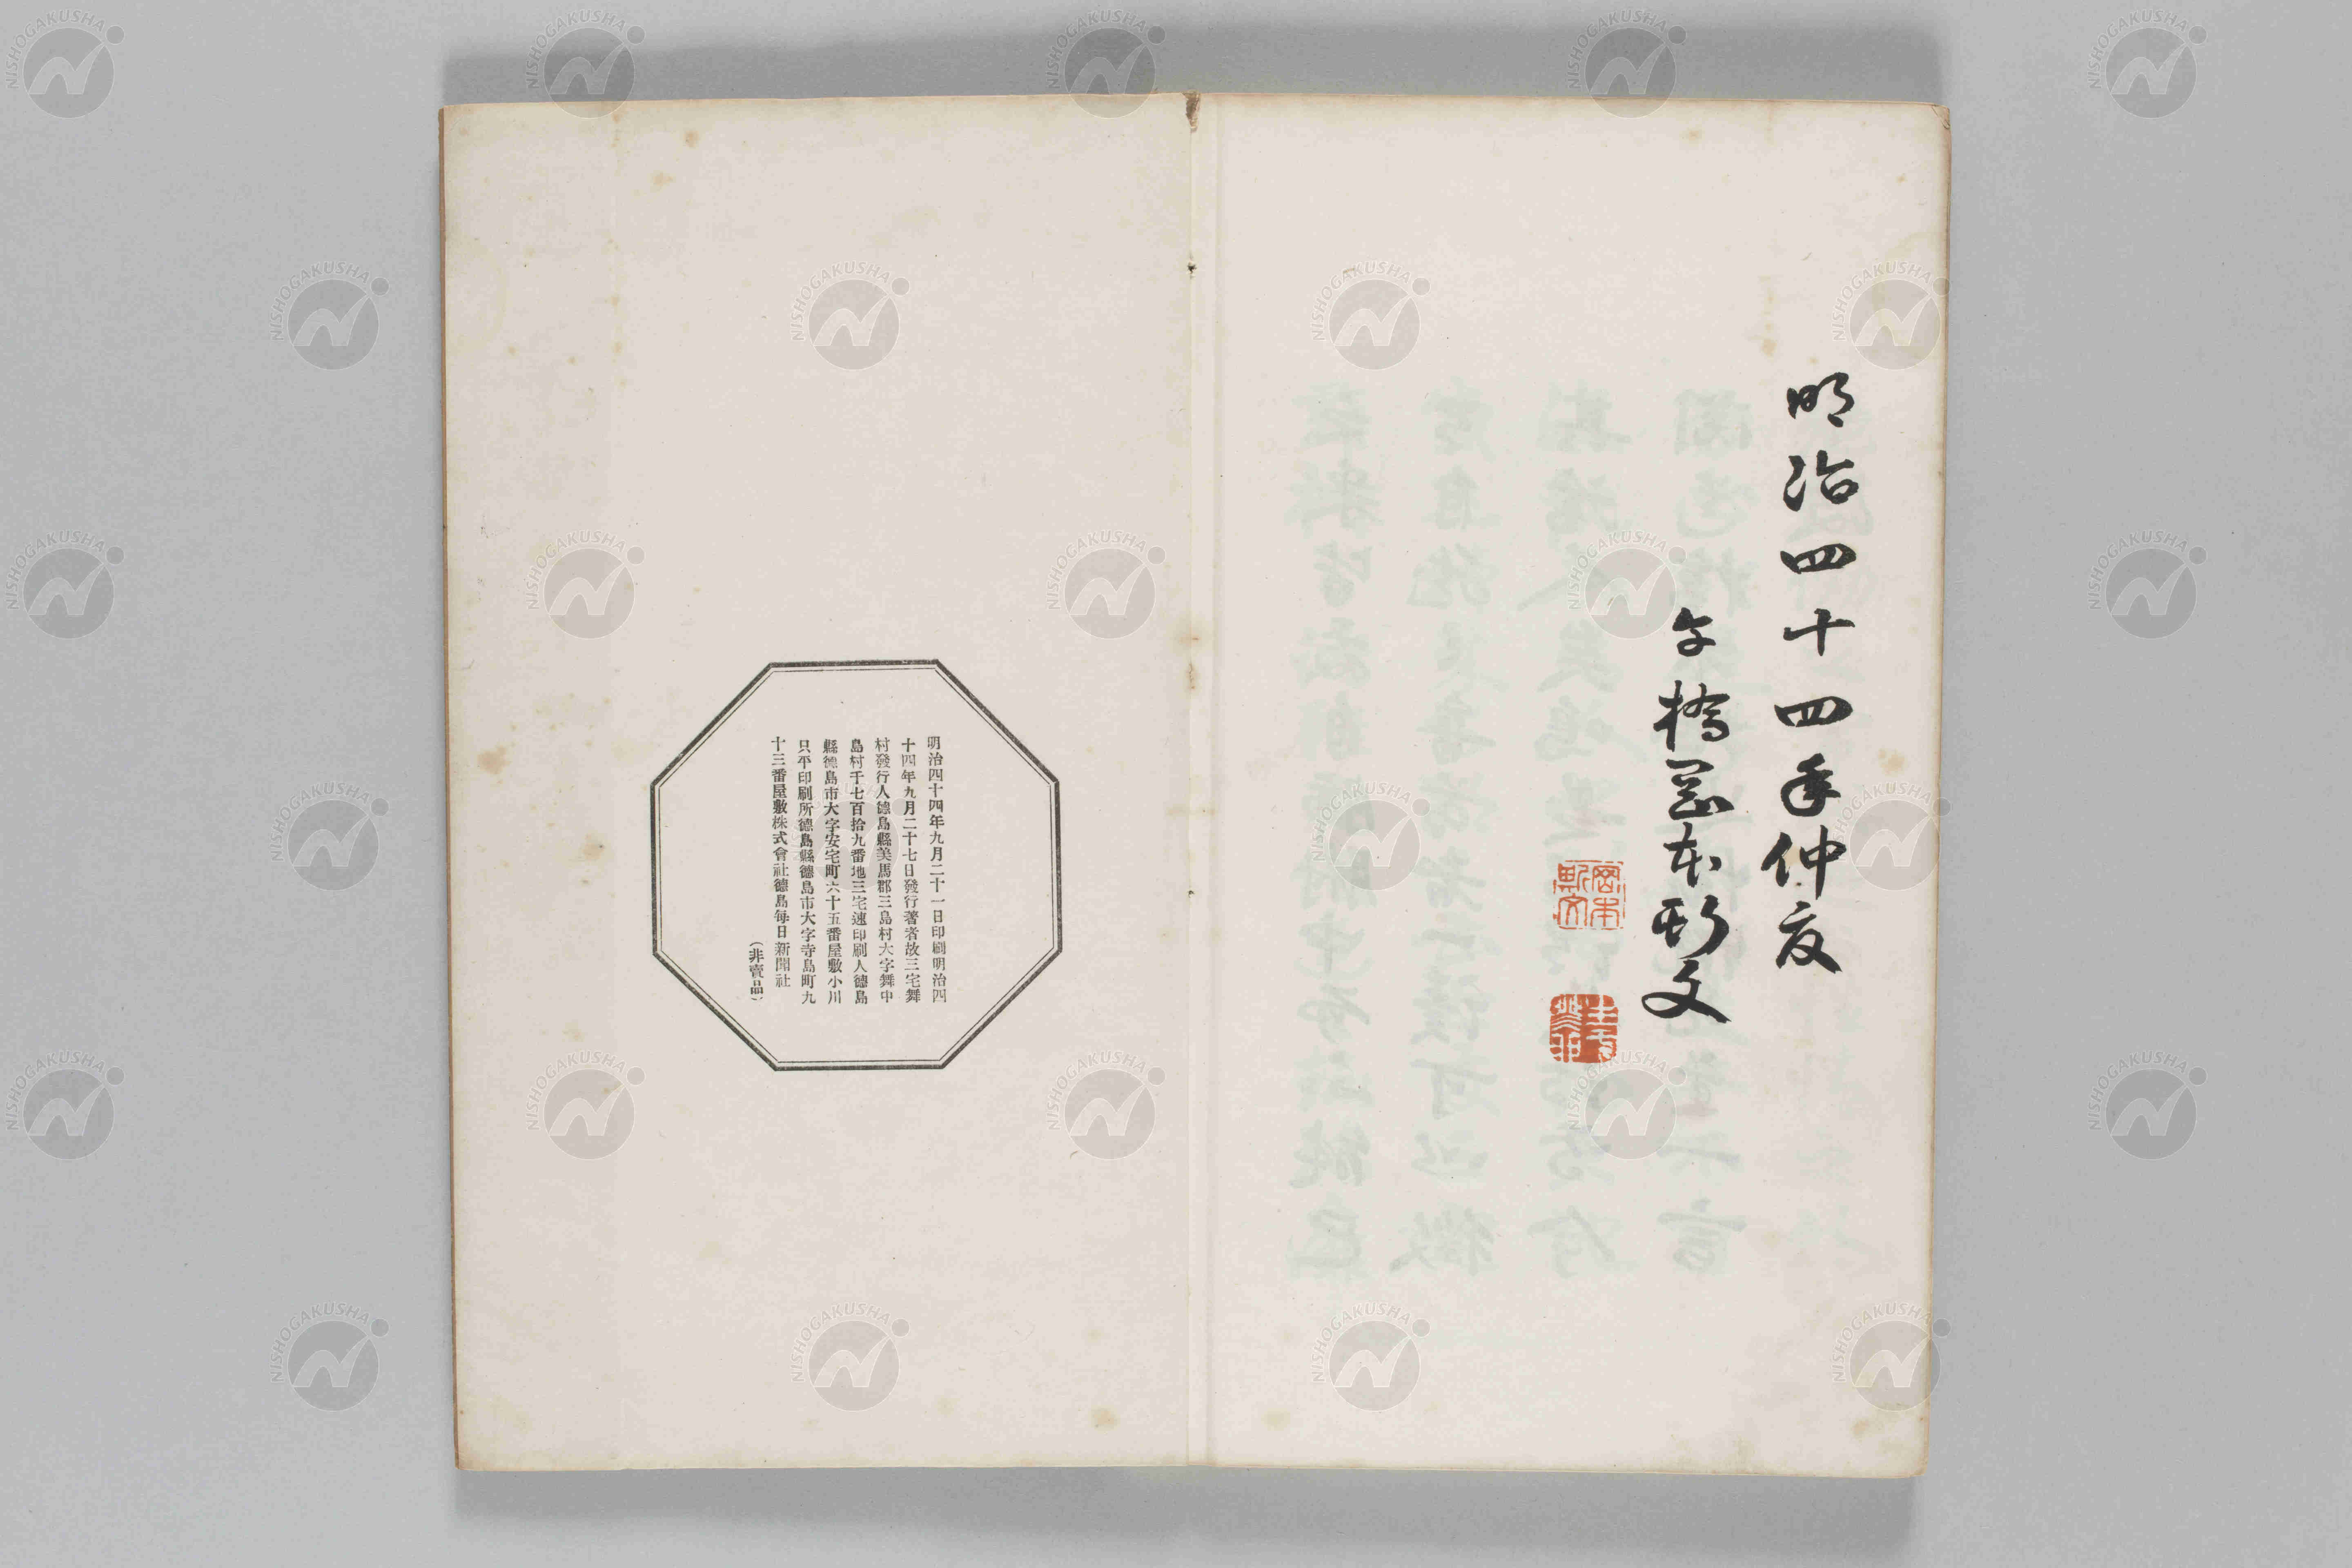 明治四十四年仲夏
午橋岡本斯文
岡本
斯文
明治四十四年九月二十一日印刷明治四
十四年九月二十七日發行著者故三宅舞
村發行人德島縣美馬郡三島村大字舞中
島村千七百拾九番地三宅速印刷人德島
縣德島市大字安宅町六十五番屋敷小川
只平印刷所德島縣德島市大字寺島町九
十三番屋敷株式會社德島每日新聞社
(非賣品)
NISHOGAKUSHA